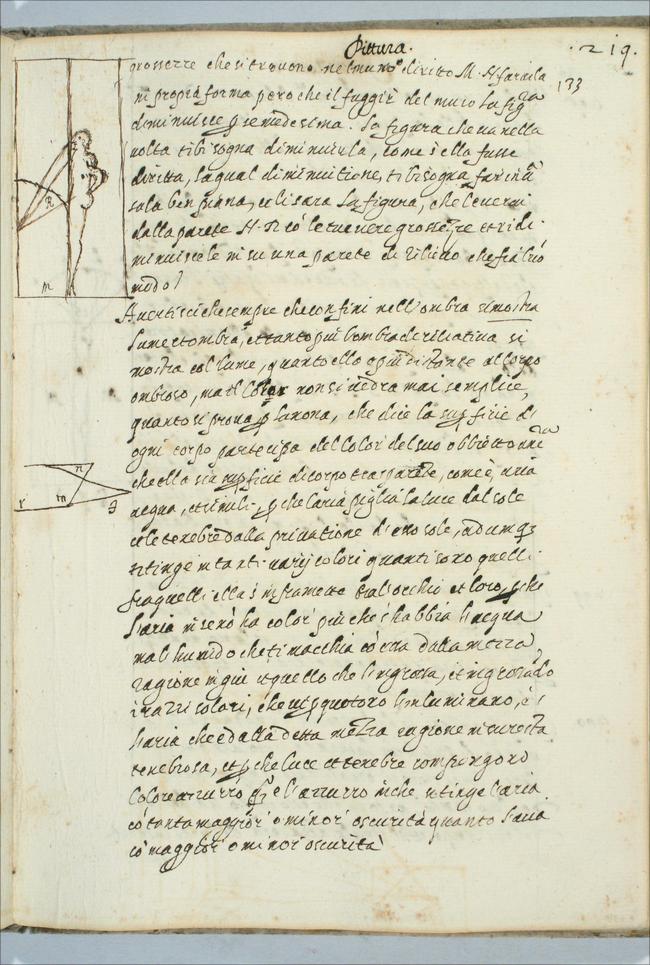 Pittura.
219.
133
grossezze che si trovono nel muro diritto M. A farai la
in propria forma pero che il fuggir del muro la figra
diminuisce p se medesima. la figura che va nella
volta ti bisogna diminuirla, come s'ella fusse
diritta, la qual diminuitione, ti bisogna far in
sala ben piana, et li sara la figura, che leverai
dalla parete A. R. cò le sue vere grossezze et ridi
minuiscele in su una parete di rilievo che fia buò
modo /
R
m
Avertisci che sempre che confini nell'ombra si mostra
lume et ombra, et tanto piu l'ombra derivativa si
mostra col lume, quanto ella è piu distante al corpo
ombroso, ma il color non si vedra mai semplice,
questo si prova p la nona, che dice la supficie di
ogni corpo participa del color del suo obbietto anc
che ella sia supficie di corpo trasparete, come è aria
acqua, et simili. p che l'aria piglia la luce dal sole
et le tenebre dalla privatione di esso sole, adumq3
si tinge in tanti varij colori quanti sono quelli
fra quelli ella s'inframette tra l'occhio et loro, p che
l'aria in se nò ha colori piu che s'habbia l'acqua
ma l'humido che si macchia cò essa dalla mezza
ragione in giu è quello che l'ingrossa, et ingrossado
i razzi solari, che vi pquotono l'inluminano, et
l'aria che è dalla detta mezza ragione in su resta
tenebrosa, et p che luce et tenebre compongono
colore azzurro è l'azzurro in che si tinge l'aria
cò tanta maggior o minor oscurità quanto l'aria
cò maggior o minor oscurità
n
r
m